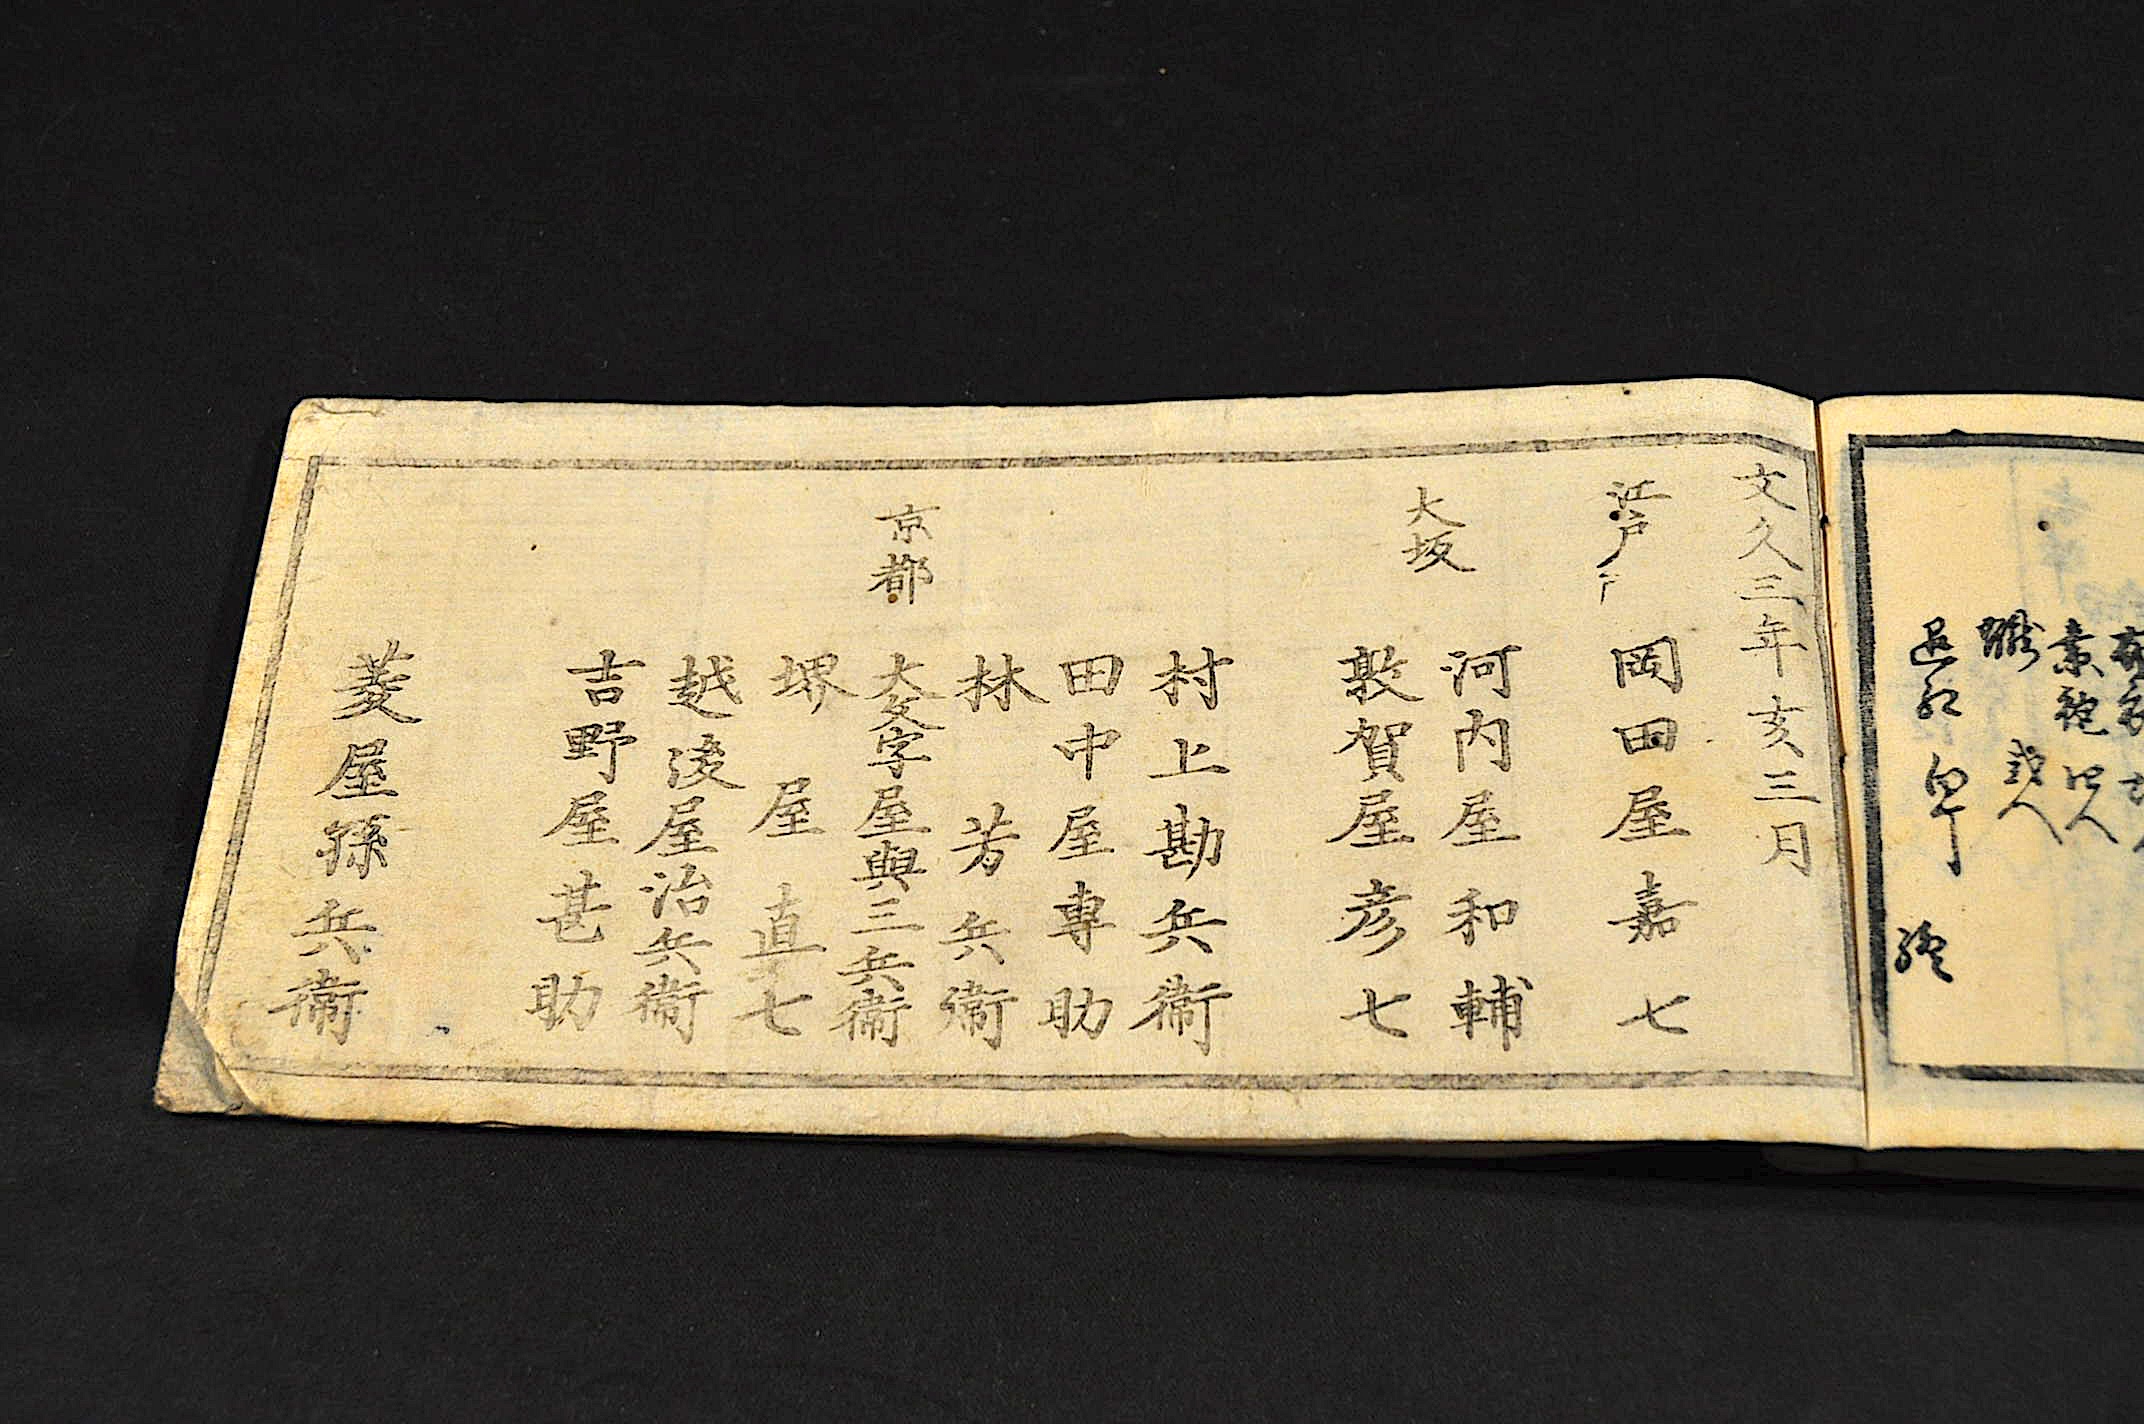 素袍 四人
退紅 白丁 終
文久三年亥三月
江戸
岡田屋嘉七
大坂
河内屋和輔
敦賀屋彦七
京都
村上勘兵衞
田中屋専助
林芳兵衞
大文字屋與三兵衞
堺屋直七
越後屋治兵衞
吉野屋甚助
菱屋孫兵衞